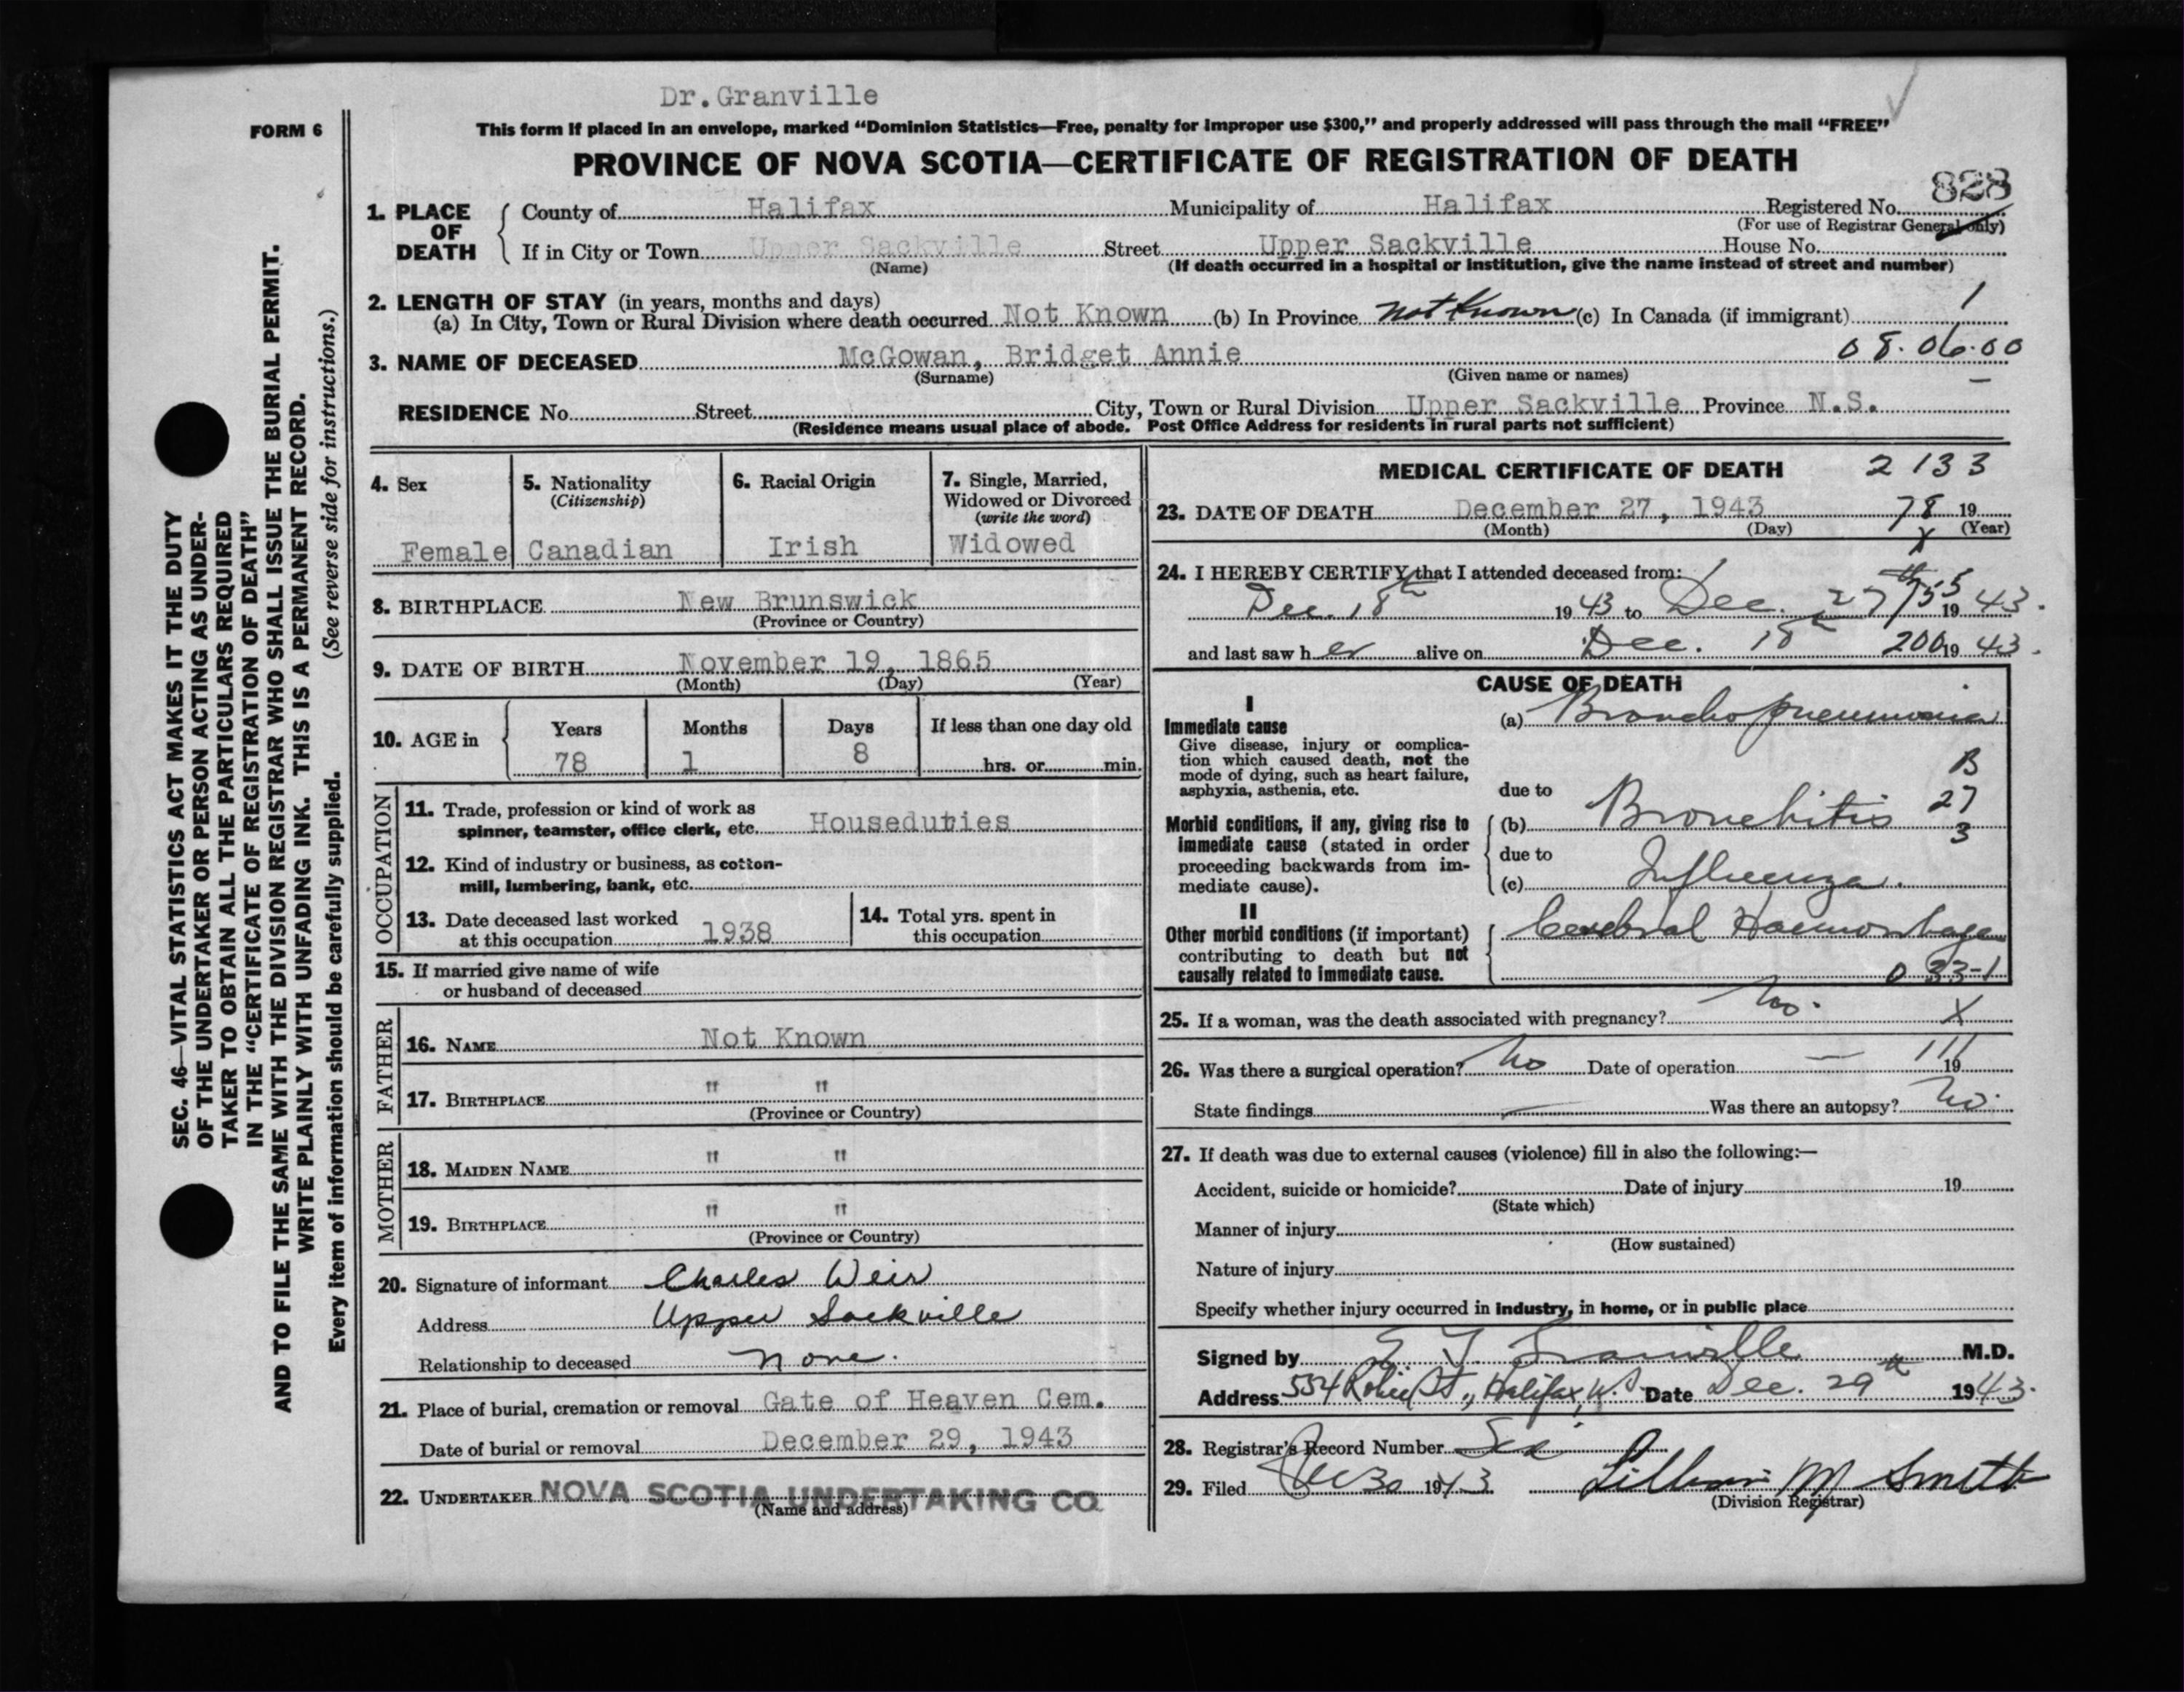 Dr.Granville
FORM 6
This form if placed in an envelope, marked “Dominion Statistics—Free, penalty for improper use $300,” and properly addressed will pass through the mail “FREE”
PROVINCE OF NOVA SCOTIA—CERTIFICATE OF REGISTRATION OF DEATH
828
1. PLACE OF DEATH
County of Halifax Municipality of Halifax Registered No.
(For use of Registrar General only)
If in City or Town Upper Sackville Street Upper Sackville House No.
(Name) (If death occurred in a hospital or institution, give the name instead of street and number)
2. LENGTH OF STAY (in years, months and days)
(a) In City, Town or Rural Division where death occurred Not Known (b) In Province not Known (c) In Canada (if immigrant) 1
3. NAME OF DECEASED McGowan, Bridget Annie 08.06.00
(Surname) (Given name or names)
RESIDENCE No. Street City, Town or Rural Division Upper Sackville Province N.S.
(Residence means usual place of abode. Post Office Address for residents in rural parts not sufficient)
4. Sex
Female
5. Nationality
(Citizenship)
Canadian
6. Racial Origin
Irish
7. Single, Married,
Widowed or Divorced
(write the word)
Widowed
8. BIRTHPLACE New Brunswick
(Province or Country)
9. DATE OF BIRTH November 19, 1865
(Month) (Day) (Year)
10. AGE in
Years Months Days If less than one day old
78 1 8 hrs. or min.
OCCUPATION
11. Trade, profession or kind of work as
spinner, teamster, office clerk, etc. Houseduties
12. Kind of industry or business, as cotton-
mill, lumbering, bank, etc.
13. Date deceased last worked
at this occupation 1938
14. Total yrs. spent in
this occupation
15. If married give name of wife
or husband of deceased
FATHER
16. NAME Not Known
17. BIRTHPLACE " "
(Province or Country)
MOTHER
18. MAIDEN NAME " "
19. BIRTHPLACE " "
(Province or Country)
20. Signature of informant Charles Weir
Address Upper Sackville
Relationship to deceased none.
21. Place of burial, cremation or removal Gate of Heaven Cem.
Date of burial or removal December 29, 1943
22. UNDERTAKER NOVA SCOTIA UNDERTAKING CO.
(Name and address)
MEDICAL CERTIFICATE OF DEATH 2133
23. DATE OF DEATH December 27, 1943 78 19
(Month) (Day) (Year)
X
24. I HEREBY CERTIFY that I attended deceased from:
Dec. 18th 1943 to Dec. 27th 1943.
and last saw her alive on Dec. 18th 200 1943.
CAUSE OF DEATH
I
Immediate cause
Give disease, injury or complica-
tion which caused death, not the
mode of dying, such as heart failure,
asphyxia, asthenia, etc.
(a) Bronchopneumonia
due to
B
27
3
Morbid conditions, if any, giving rise to
immediate cause (stated in order
proceeding backwards from im-
mediate cause).
(b) Bronchitis
due to
(c) Influenza.
II
Other morbid conditions (if important)
contributing to death but not
causally related to immediate cause.
Cerebral Haemorrhage
0 33-1
25. If a woman, was the death associated with pregnancy? No. X
26. Was there a surgical operation? No Date of operation — 111 19
State findings — Was there an autopsy? No.
27. If death was due to external causes (violence) fill in also the following:—
Accident, suicide or homicide? Date of injury 19
(State which)
Manner of injury
(How sustained)
Nature of injury
Specify whether injury occurred in industry, in home, or in public place
Signed by Granville M.D.
Address 554 Robie St., Halifax, N.S. Date Dec. 29th 1943.
28. Registrar's Record Number
29. Filed Dec 30 1943 Lillian M Smith
(Division Registrar)
SEC. 46—VITAL STATISTICS ACT MAKES IT THE DUTY
OF THE UNDERTAKER OR PERSON ACTING AS UNDER-
TAKER TO OBTAIN ALL THE PARTICULARS REQUIRED
IN THE “CERTIFICATE OF REGISTRATION OF DEATH”
AND TO FILE THE SAME WITH THE DIVISION REGISTRAR WHO SHALL ISSUE THE BURIAL PERMIT.
WRITE PLAINLY WITH UNFADING INK. THIS IS A PERMANENT RECORD.
Every item of information should be carefully supplied. (See reverse side for instructions.)